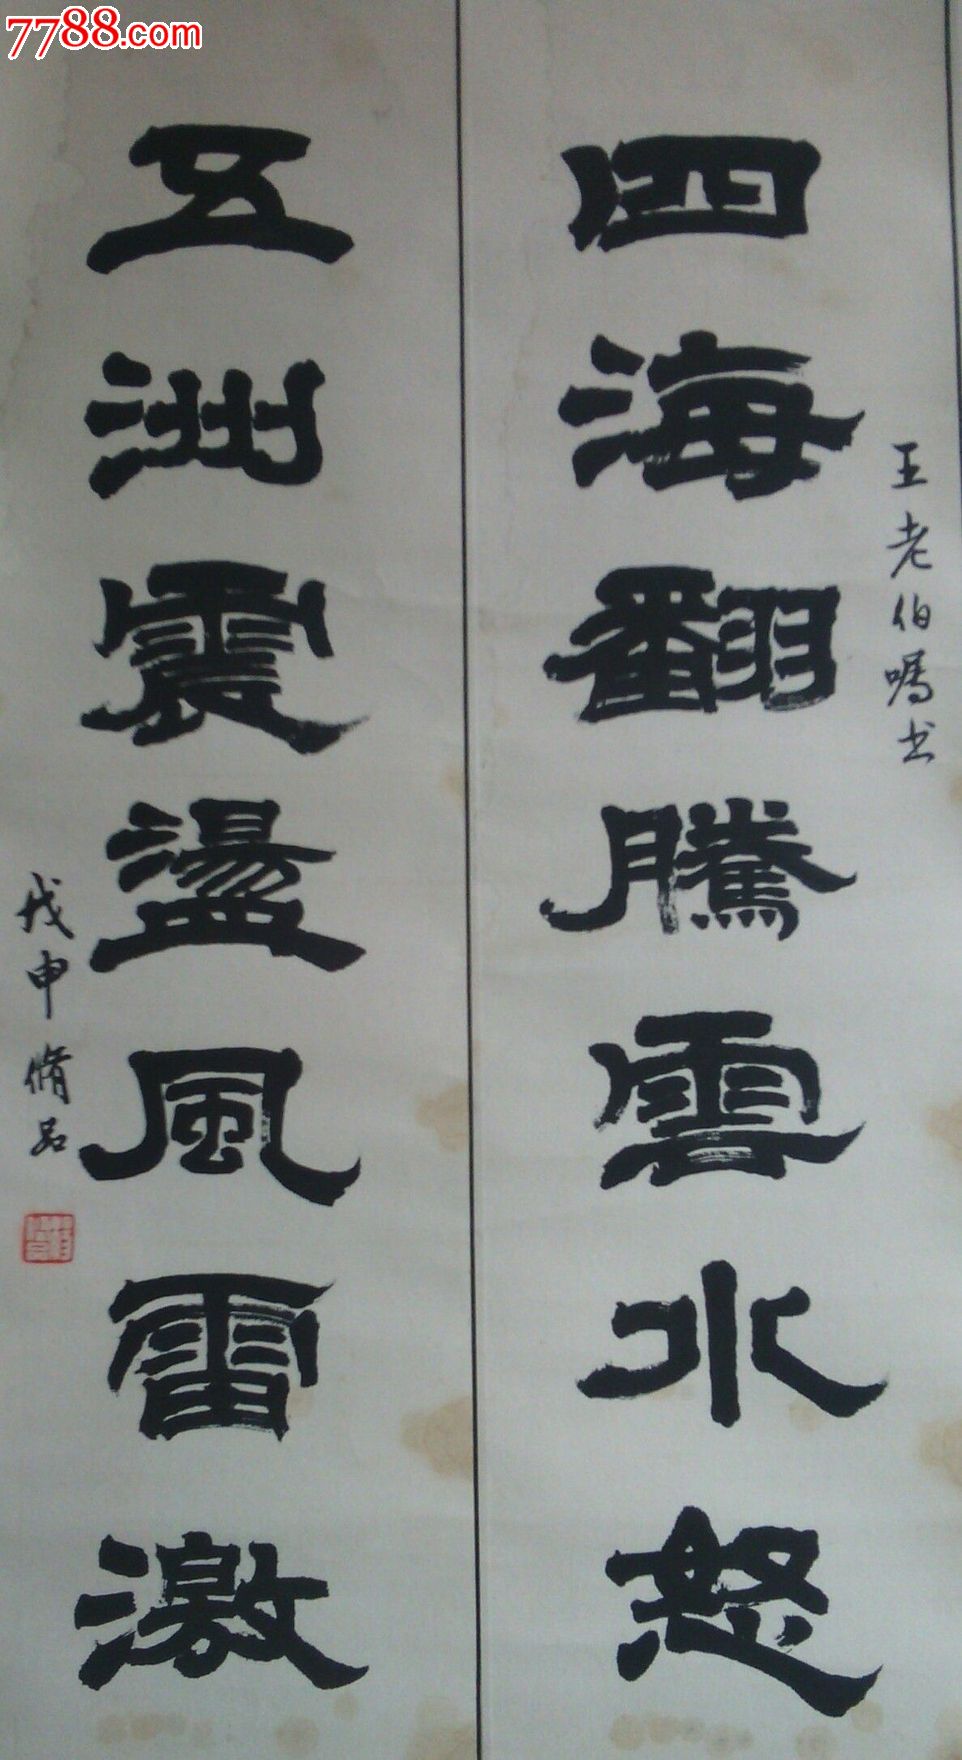 7788.com
四海翻騰雲水怒
王老伯嘱书
五洲震盪風雷激
戊申脩品